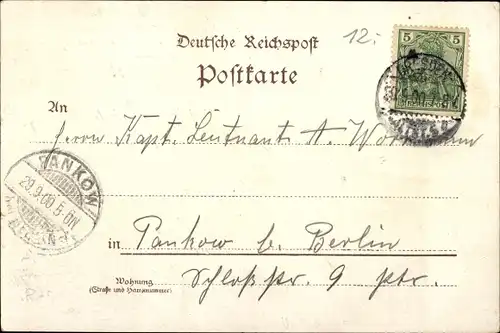 12.-
Deutsche Reichspost
Postkarte
5 5
An
Herrn Kapt. Leutnant A.
PANKOW
29.9.00.5-6N
in Pankow b. Berlin
Wohnung
(Straße und Hausnummer)
Schloßstr. 9 ptr.